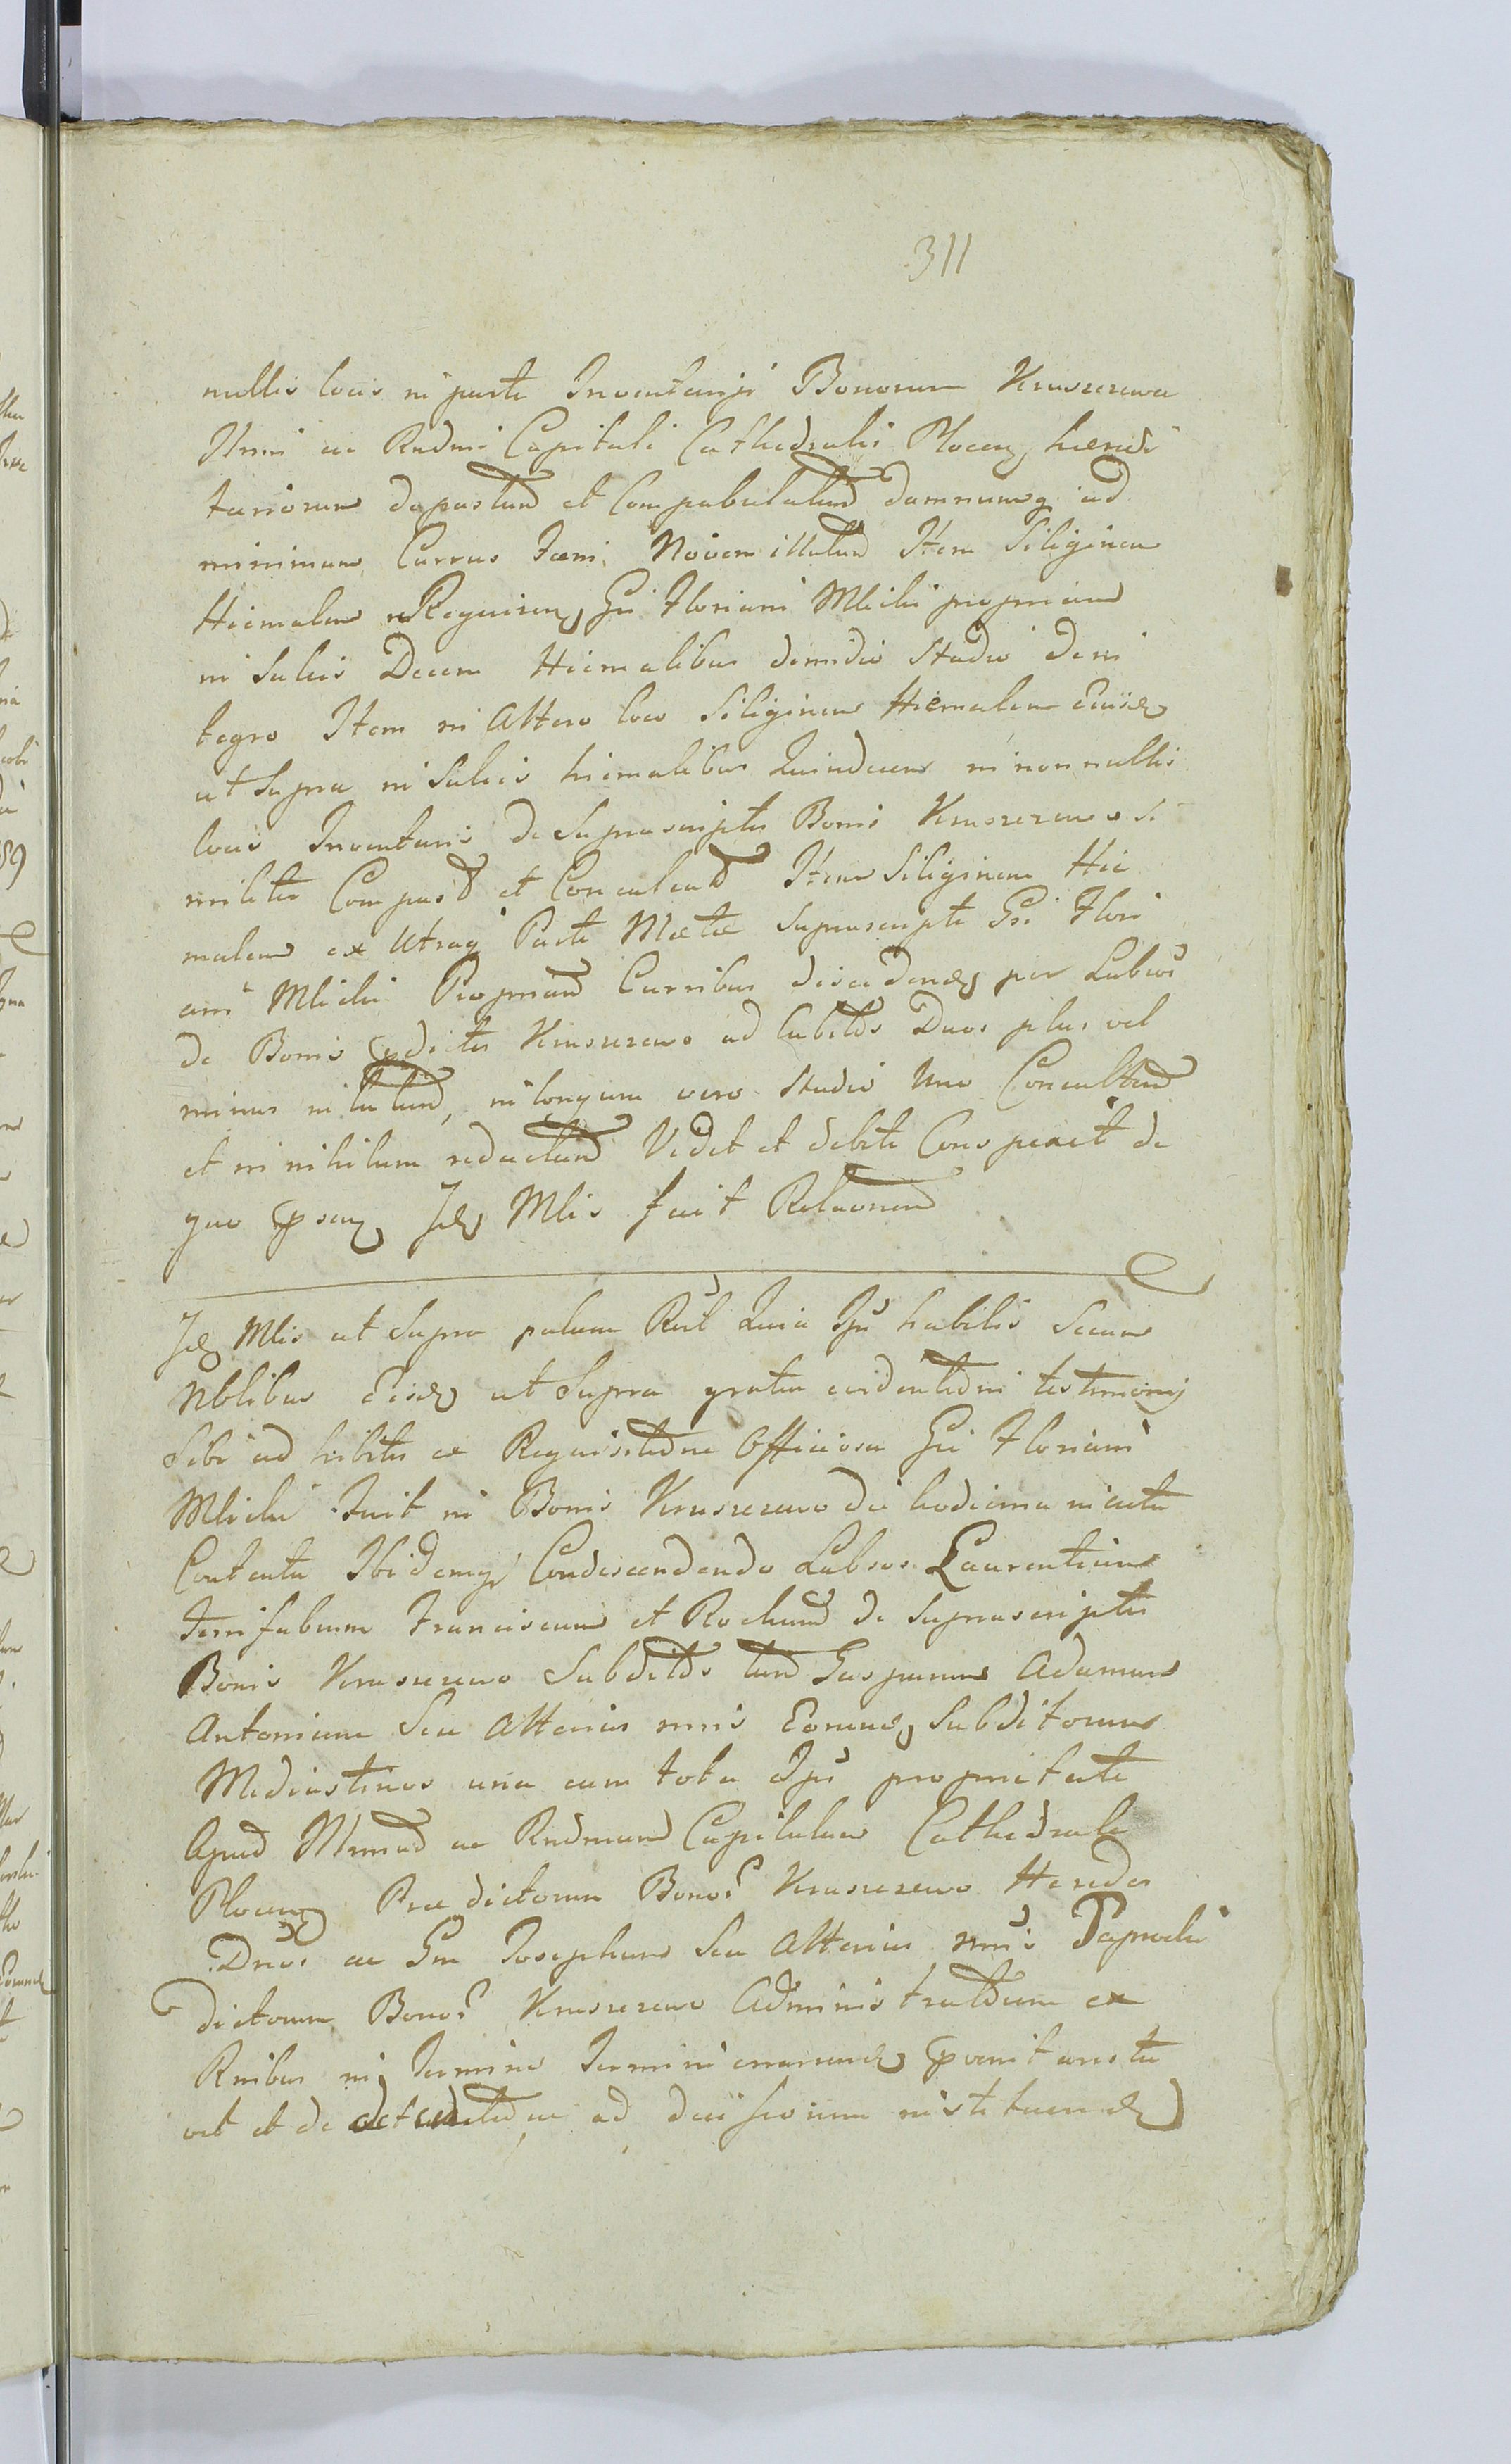 311
nullis locis in parte Inventarii Bonorum Kruszczewa
Illmi ac Rndmi Capituli Cathedralis Plocen hæredi
tariorum depastum et Compabulatum damnumq ad
minimum Currus Fæni Novem illatum Item Siliginem
Hiemalem Requiren Gsi Floriani Mlicki propriam
in Sulcis Decem Hiemalibus dimidio Stadio dein
tegro Item in Altero loco Siliginem Hiemalem Eiusd
ut Supra in Sulcis hiemalibus Quindecem in nonnullis
locis Inventaris de Suprascriptis Bonis Kruszczewo Si
militer Compast et Conculcat Item Siliginem Hie
malem ex Utraq Parte Metæ Suprascripti Gsi Flori
ani Mlicki Propriam Curribus discedend per Labsos
de Bonis pdictis Kruszczewo ad Cubitos Duos plus vel
minus in latum, in longum vero Stadio Uno Conculcatam
et in nihilum redactam Vidit et debite Conspexit de
quo psen Id Mlis fecit Relaonem
Id Mlis ut Supra palam Rul Quia Ipse habilis Secum
Nblibus Eisd ut Supra gratia evidentioris testimonij
Sibi ad hibitis ex Requisitione Officiosa Gsi Floriani
Mlicki fuit in Bonis Kruszczewo die hodierna in actu
Contenta Ibidemq Condescendendo Labsos Laurentium
Ferrifabrum Franciscum et Rochum de Suprascriptis
Bonis Kruszczewo Subditos tum Gasparum Adamum
Antonium Seu Alterius nnis Eorund Subditorum
Mediastinos una cum tota Ipsi proprietate
Apud Illmum ac Rndmum Capitulum Cathedrale
Plocen Præ dictorum Bonor Kruszczewo Hæredes
Dnos ac Gsm Josephum Seu Alterius nnis Paprocki
dictorum Bonor Kruszczewo Administratorem ex
Rnibus in Termino Termini enarrand pvenit aresta
vit et de ad ad deciscionem instituend